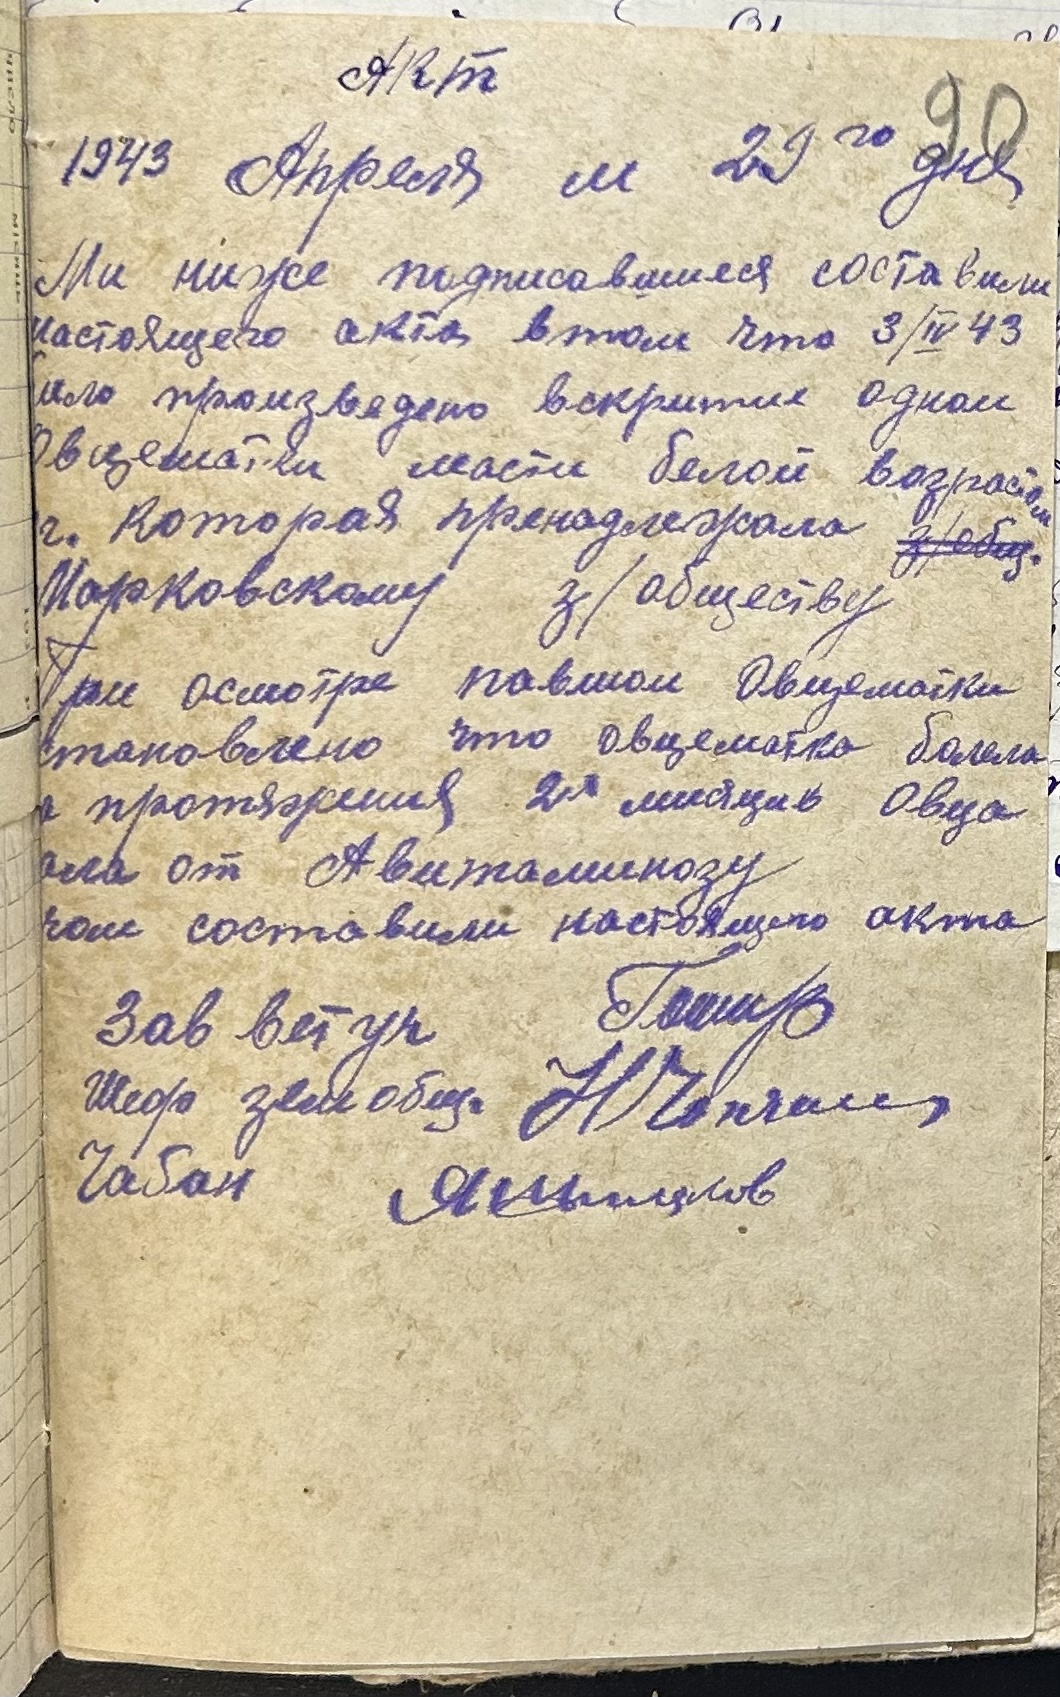 Акт
90
1943 Апреля м 29го дня
Ми ниже подписавшиеся составили
настоящего акта втом что 3/IV 43
было произведено вскритие одной
Овцематки масти белой возрастом
г. Которая пренадлежала з/общ.
Марковскому з/обществу
При осмотре павшои Овцематки
становлено что овцематка болела
протяжения 2х мисяцив Овца
ала от Авитаминозу
чом составили настоящего акта
Зав вет уч
Шеф земобщ.
Чабан